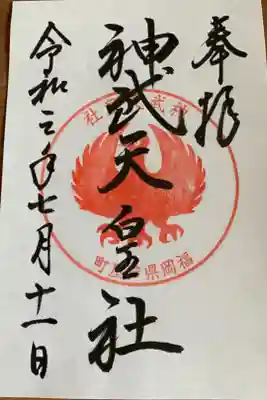 奉拝
神武天皇社
令和三年七月十一日
神武 社
福岡県 町